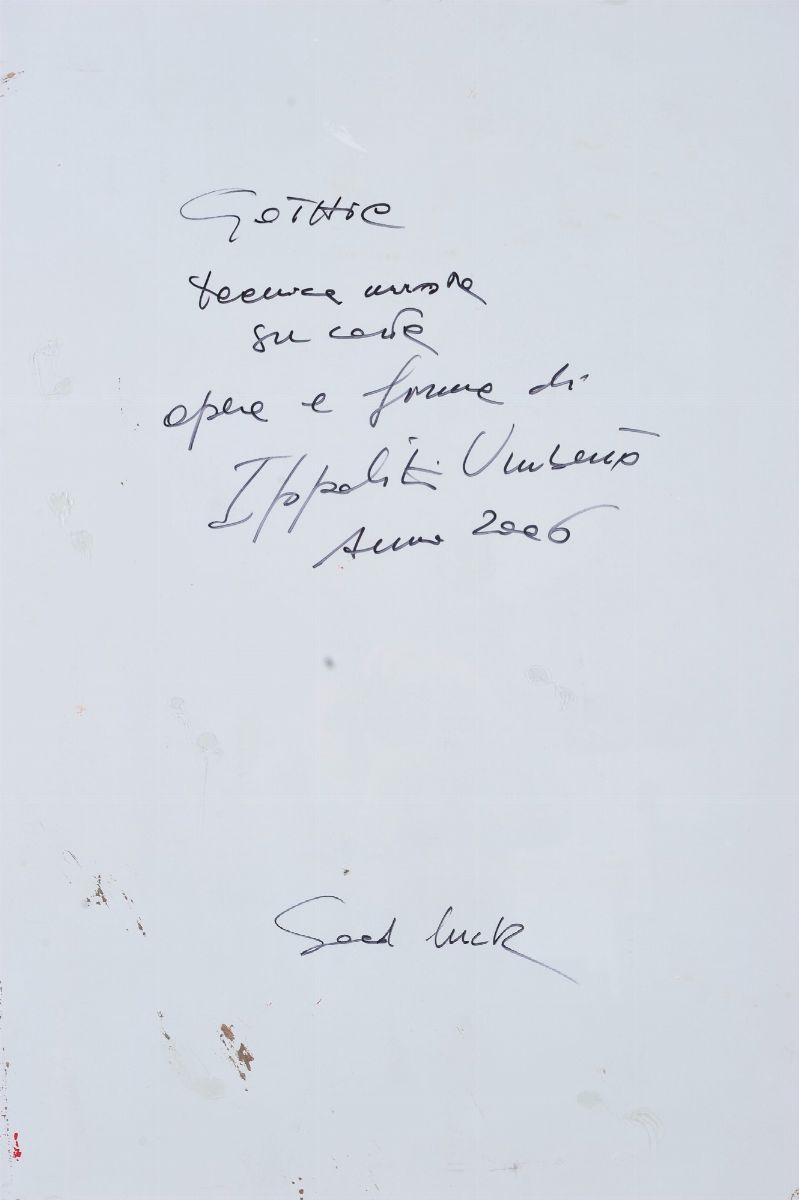 GOTHIC
tecnica mista
su carta
opera e forma di
Ippoliti Umberto
Anno 2006
Good luck